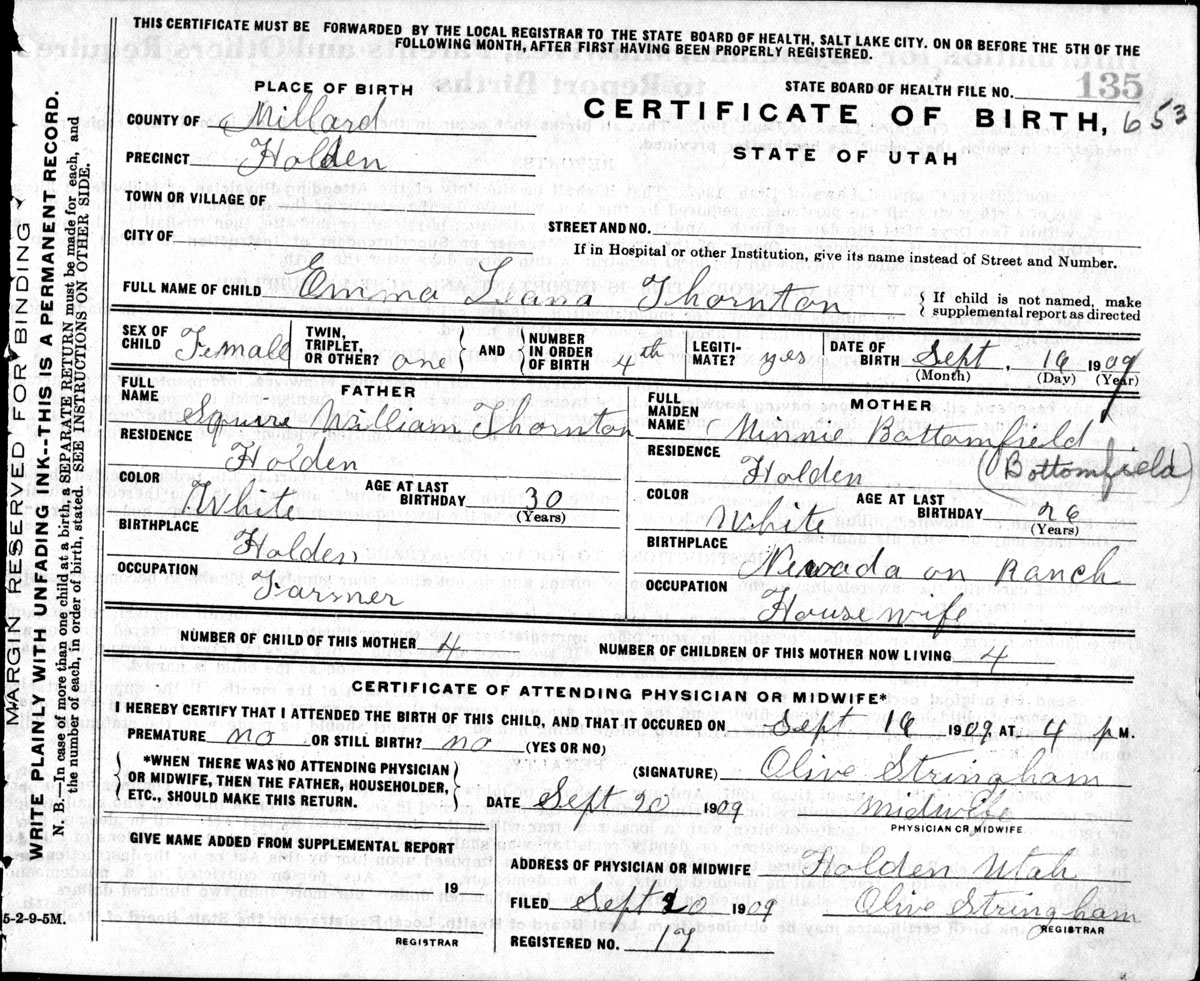 THIS CERTIFICATE MUST BE FORWARDED BY THE LOCAL REGISTRAR TO THE STATE BOARD OF HEALTH, SALT LAKE CITY. ON OR BEFORE THE 5TH OF THE
FOLLOWING MONTH, AFTER FIRST HAVING BEEN PROPERLY REGISTERED.
MARGIN RESERVED FOR BINDING
WRITE PLAINLY WITH UNFADING INK--THIS IS A PERMANENT RECORD.
N. B.—In case of more than one child at a birth, a SEPARATE RETURN must be made for each, and
the number of each, in order of birth, stated. SEE INSTRUCTIONS ON OTHER SIDE.
PLACE OF BIRTH
STATE BOARD OF HEALTH FILE NO. 135
COUNTY OF Millard
CERTIFICATE OF BIRTH, 653
PRECINCT Holden
STATE OF UTAH
TOWN OR VILLAGE OF
STREET AND NO.
CITY OF
If in Hospital or other Institution, give its name instead of Street and Number.
FULL NAME OF CHILD Emma Leana Thornton { If child is not named, make
supplemental report as directed
SEX OF CHILD Female TWIN, TRIPLET, OR OTHER? one } AND { NUMBER IN ORDER OF BIRTH 4th LEGITI-MATE? yes DATE OF BIRTH Sept, 16 1909
(Month) (Day) (Year)
FATHER
FULL NAME Squire William Thornton
RESIDENCE Holden
COLOR White AGE AT LAST BIRTHDAY 30
(Years)
BIRTHPLACE Holden
OCCUPATION Farmer
MOTHER
FULL MAIDEN NAME Minnie Bottomfield
(Bottomfield)
RESIDENCE Holden
COLOR White AGE AT LAST BIRTHDAY 26
(Years)
BIRTHPLACE Nevada on Ranch
OCCUPATION Housewife
NUMBER OF CHILD OF THIS MOTHER 4 NUMBER OF CHILDREN OF THIS MOTHER NOW LIVING 4
CERTIFICATE OF ATTENDING PHYSICIAN OR MIDWIFE*
I HEREBY CERTIFY THAT I ATTENDED THE BIRTH OF THIS CHILD, AND THAT IT OCCURED ON Sept 16 1909, AT 4 p M.
PREMATURE no, OR STILL BIRTH? no (YES OR NO)
{ *WHEN THERE WAS NO ATTENDING PHYSICIAN
OR MIDWIFE, THEN THE FATHER, HOUSEHOLDER,
ETC., SHOULD MAKE THIS RETURN. }
(SIGNATURE) Olive Stringham
DATE Sept 20 1909 midwife
PHYSICIAN OR MIDWIFE
GIVE NAME ADDED FROM SUPPLEMENTAL REPORT
19
REGISTRAR
ADDRESS OF PHYSICIAN OR MIDWIFE Holden Utah
FILED Sept 20 1909 Olive Stringham
REGISTRAR
REGISTERED NO. 17
5-2-9-5M.